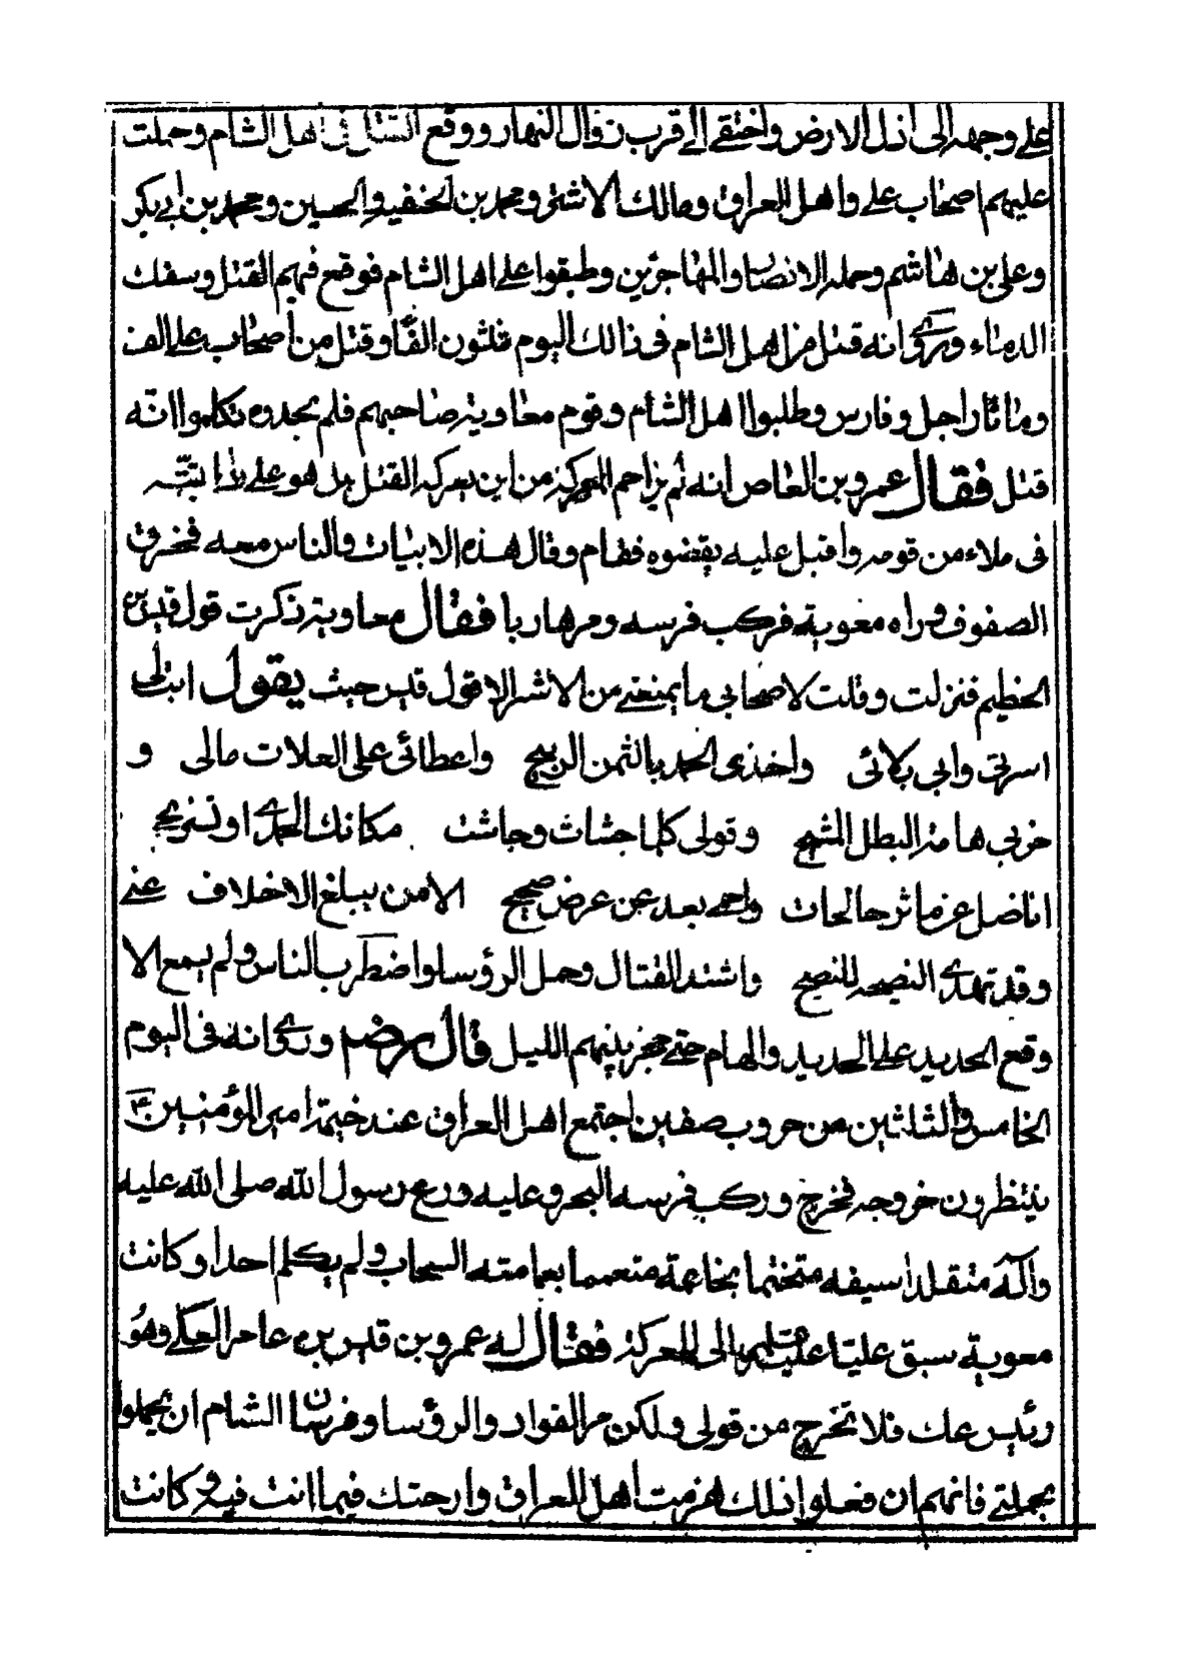 على وجهه الى انزل الارض واختفى الى قرب زوال النهار ووقع القتال فى اهل الشام وحملت
عليهم اصحاب على واهل العراق ومالك الاشتر ومحمد بن الحنفيه والحسين ومحمد بن ابى بكر
وعلى بن هاشم وحمله الانصار والمهاجرين وطبقوا على اهل الشام فوقع فيهم القتل وسفك
الدماء وروى انه قتل من اهل الشام فى ذالك اليوم ثلثون الفًا وقتل من اصحاب على الف
وماتا راجل وفارس وطلبوا اهل الشام وقوم معاوية صاحبهم فلم يجدوه تكلموا انّه
قتل فقال عمرو بن العاص انه لم يزاحم المعركة من اين يدركه القتل بل هو على
فى ملاء من قومه واقبل عليه فقام وقال هذه الابيات والناس معه فخرق
الصفوف فراه معوية فركب فرسه ومر هاربا فقال معاوية ذكرت قول قيس بن
الخطيم فنزلت وقلت لاصحابى ما يمنعنى من الاشتر الا قول قيس حيث يقول ابت لى
اسرتى وابى بلائى واخذى الحمد بالثمن الربيح واعطائى على العلات مالى و
ضربى هامة البطل المشيح وقولى كلما جشات وجاشت مكانك تحمدى او تستريحى
اناضل عن ماثر صالحات واحمى بعد عن عرض صحيح الا من يبلغ الاخلاف عنى
وقد تهدى النصيحه للنصيح واشتد القتال وحمل الرؤسا واضطرب الناس ولم يسمع الا
وقع الحديد على الحديد والهام حتى حجز بينهم الليل قال رض وروى انه فى اليوم
الخامس والثلثين من حروب صفين اجتمع اهل العراق عند خيمة امير المؤمنين ع
ينتظرون خروجه فخرج وركب فرسه البحر وعليه ودرع رسول الله صلى الله عليه
وآله متقلدا سيفه متختما بخاتمه متعمما بعمامته السحاب ولم يكلم احدا وكانت
معوية سبق عليا الى المعركة فقال له عمرو بن قيس بن عامر العكى وهو
رئيس عك فلا تخرج من قولى ولكن مر القواد والرؤسا وفرسان الشام ان يحملوا
بجملتى فانهم ان فعلوا ذلك هزمت اهل العراق وارحتك فيما انت فيه وكانت